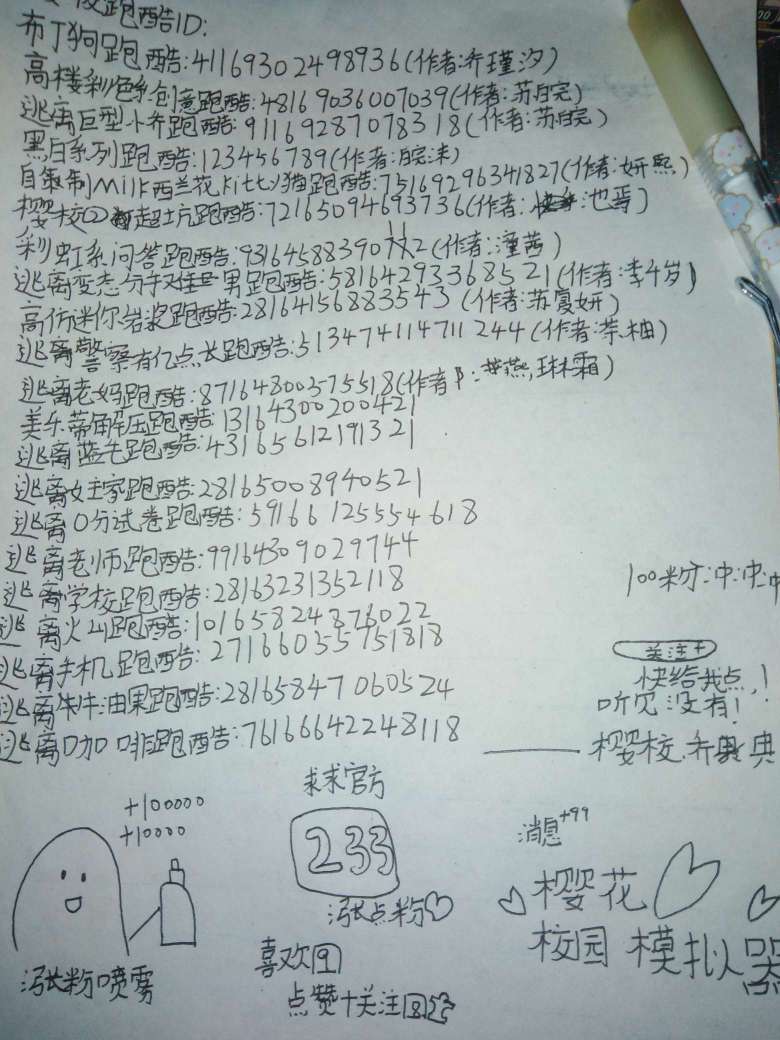 校跑酷ID:
布丁狗跑酷:41169302498936(作者:乔瑾汐)
高楼彩色系创意跑酷:48169036007039(作者:苏白完)
逃离巨型小乔跑酷:91169287078318(作者:苏皖)
黑白系列跑酷:123456789(作者:皖沫)
自策制Milk西兰花Kitty猫跑酷:75169296341827(作者:妍熙)
樱校②超土坑跑酷:72165094693736(作者:也晋)
彩虹系问答跑酷:931645883907 2(作者:潼茜)
逃离变态分手双佳男跑酷:58164293368521(作者:李千岁)
高仿迷你岩浆跑酷:28164156883543(作者:苏夏妍)
逃离警察有亿点长跑酷:513474114711244(作者:荼柚)
逃离老妈跑酷:87164800575518(作者:燕,琳霜)
美乐蒂解压跑酷:13164300200421
逃离蓝先跑酷:43165612191321
逃离女主家跑酷:28165008940521
逃离0分试卷跑酷:59166125554618
逃离老师跑酷:99164309029744
逃离学校跑酷:28163231352118
100米分:冲:冲:冲
逃离火山跑酷:10165824876022
逃离手机跑酷:27166035751818
关注+
快给我点,!
逃离牛牛油果跑酷:28165847060524
听见没有!
逃离咖啡跑酷:76166642248118
樱校.乔典
求求官方
+100000
+10000
233
消息+99
涨点粉
樱花
校园模拟器
喜欢
涨粉喷雾
点赞+关注